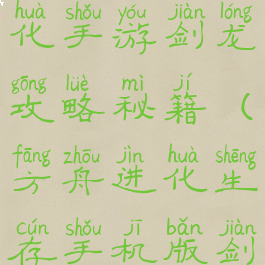 huà shǒu yóu jiàn lóng
化手游剑龙
gōng lüè mì jí
攻略秘籍（
fāng zhōu jìn huà shēng
方舟进化生
cún shǒu jī bǎn jiàn
存手机版剑